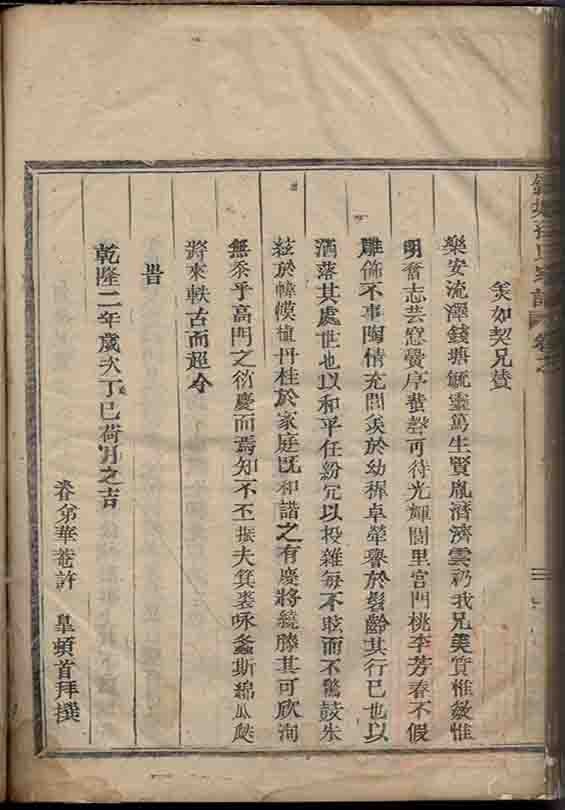 孫氏家譜 卷之
美如契兄贊
樂安流澤錢塘毓靈篤生賢胤濟濟雲礽我兄美質惟敏惟
明奮志芸窓黌序蜚聲可待光輝閭里宮門桃李芳春不假
雕飾不事陶情充閭矣於幼穉卓犖譽於髫齡其行已也以
洒落其處世也以和平任紛冗以投雜每不眩而不驚鼓朱
絃於幃幙植丹桂於家庭旣和諧之有慶將繞膝其可欣洵
無忝乎高門之衍慶而焉知不丕振夫箕裘咏螽斯綿瓜瓞
將來軼古而超今
旹
乾隆二年歲次丁巳荷月之吉
眷弟華菴許 頓首拜撰